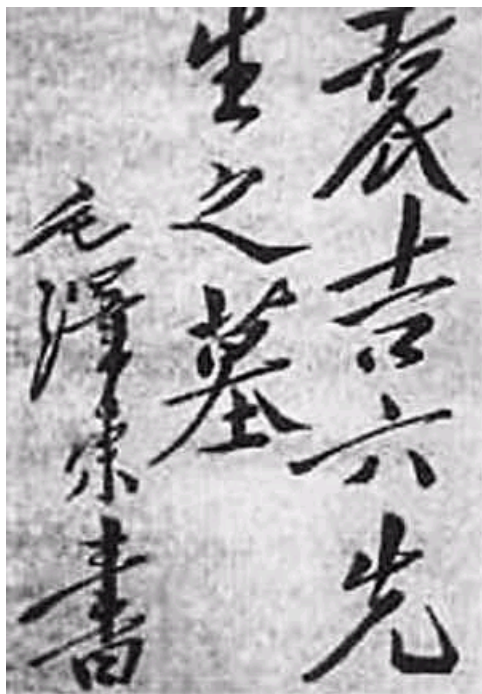 袁吉六先
生之墓
毛澤東書